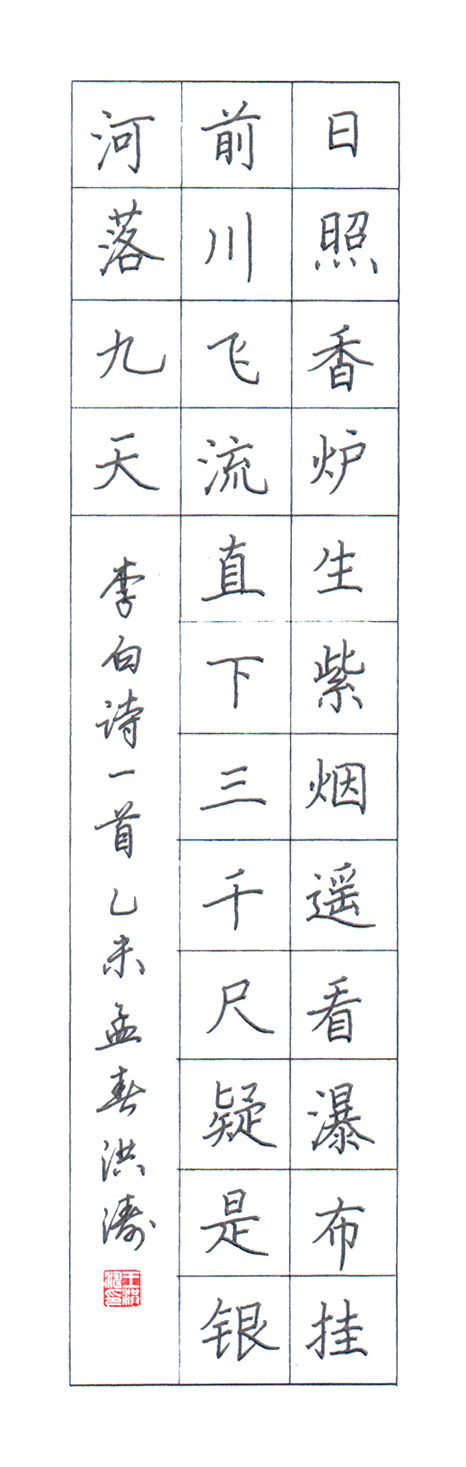 日照香炉生紫烟遥看瀑布挂
前川飞流直下三千尺疑是银
河落九天
李白诗一首乙未孟春洪涛